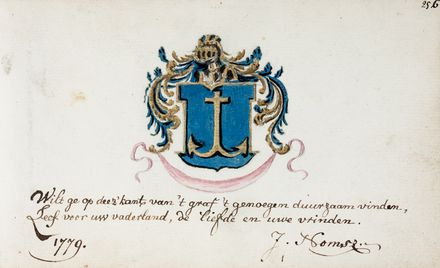 256
Wilt ge op deez' kant van 't graf 't genoegen duurzaam vinden,
Leef voor uw vaderland, de liefde en uwe vrinden.
1779.
J. Nomsz.